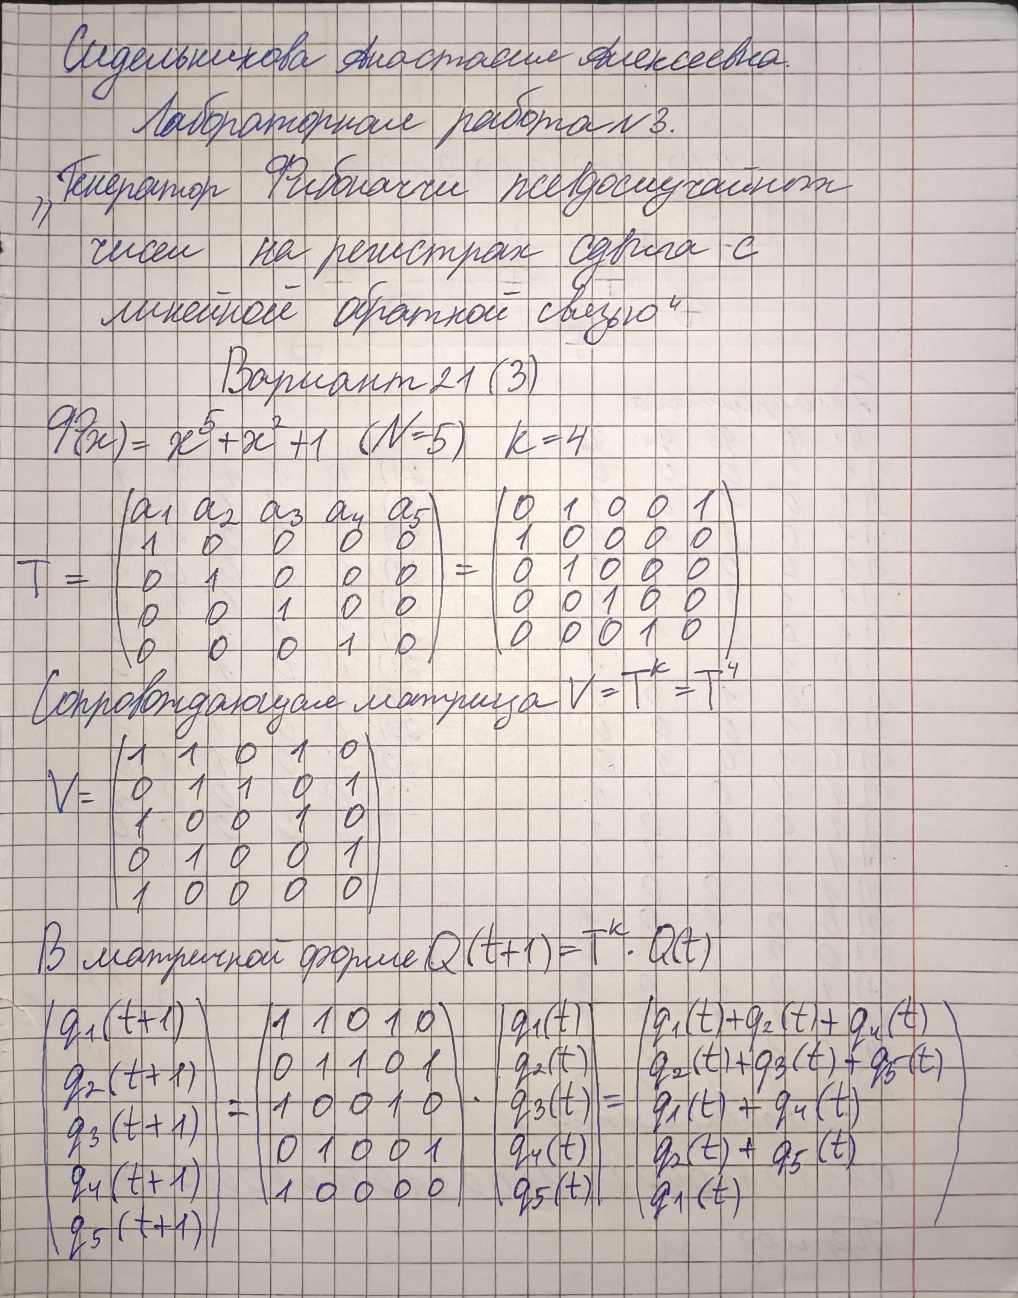 Сидельникова Анастасия Алексеевна.
Лабораторная работа N3.
„Генератор Фибоначчи псевдослучайных
чисел на регистрах сдвига с
линейной обратной связью“
Вариант 21 (3)
φ(x) = x⁵+x²+1 (N=5) k=4
a₁ a₂ a₃ a₄ a₅ 0 1 0 0 1
1 0 0 0 0 1 0 0 0 0
T = 0 1 0 0 0 = 0 1 0 0 0
0 0 1 0 0 0 0 1 0 0
0 0 0 1 0 0 0 0 1 0
Сопровождающая матрица V = Tᵏ = T⁴
1 1 0 1 0
V= 0 1 1 0 1
1 0 0 1 0
0 1 0 0 1
1 0 0 0 0
В матричной форме Q(t+1) = Tᵏ · Q(t)
q₁(t+1) 1 1 0 1 0 q₁(t) q₁(t)+q₂(t)+q₄(t)
q₂(t+1) 0 1 1 0 1 q₂(t) q₂(t)+q₃(t)+q₅(t)
q₃(t+1) = 1 0 0 1 0 · q₃(t) = q₁(t)+q₄(t)
q₄(t+1) 0 1 0 0 1 q₄(t) q₂(t)+q₅(t)
q₅(t+1) 1 0 0 0 0 q₅(t) q₁(t)